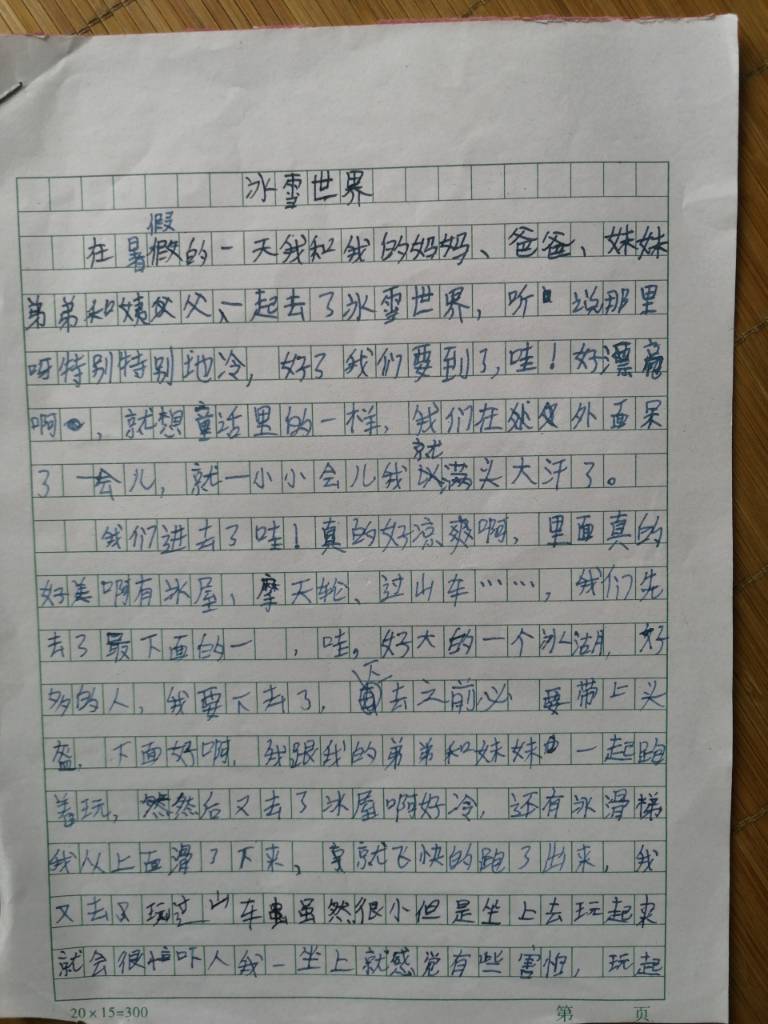 冰雪世界
假
在暑假的一天我和我的妈妈、爸爸、妹妹
弟弟和姨父、一起去了冰雪世界，听说那里
呀特别特别地冷，好了我们要到了，哇！好漂亮
啊，就想童话里的一样，我们在外面呆
就
了一会儿，就一小小会儿我满头大汗了。
我们进去了哇！真的好凉爽啊，里面真的
好美啊有冰屋、摩天轮、过山车……，我们先
去了最下面的一，哇。好大的一个冰湖，好
下
多的人，我要下去了，去之前必要带上头
盔，下面好啊，我跟我的弟弟和妹妹一起跑
着玩，然后又去了冰屋啊好冷，还有冰滑梯
我从上面滑了下来，就飞快的跑了出来，我
又去又玩过山车虽然很小但是坐上去玩起来
就会很吓人我一坐上就感觉有些害怕，玩起
20×15=300 第 页